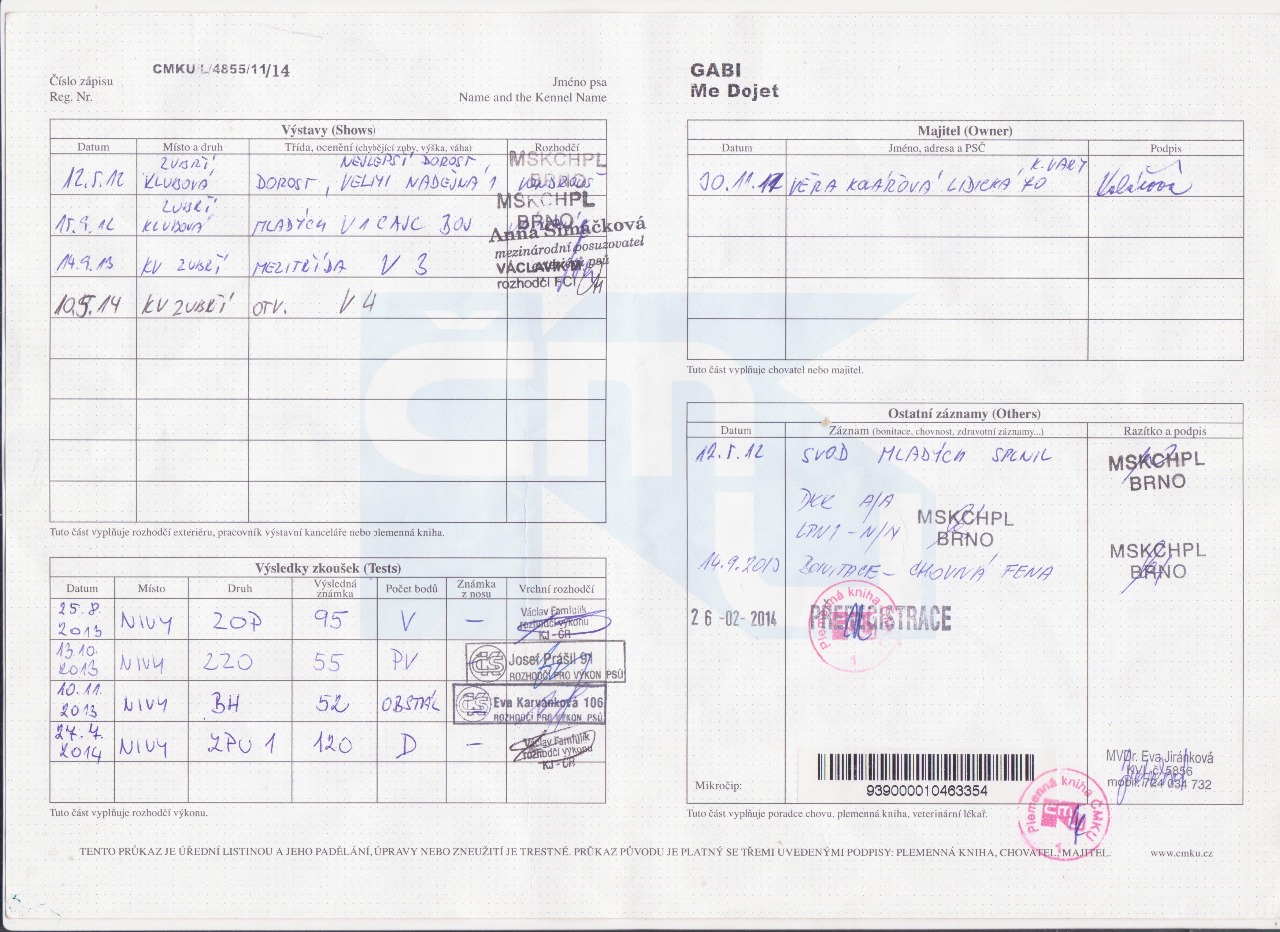 Číslo zápisu
Reg. Nr.
CMKU L/4855/11/14
Jméno psa
Name and the Kennel Name
GABI
Me Dojet
Výstavy (Shows)
Datum Místo a druh Třída, ocenění (chybějící zuby, výška, váha) Rozhodčí
12.5.12 ZUBŘÍ KLUBOVÁ NEJLEPŠÍ DOROST, DOROST, VELMI NADĚJNÁ 1
MSKCHPL
BRNO
15.9.12 ZUBŘÍ KLUBOVÁ MLADÝCH V1 CAJC BOJ
MSKCHPL
BRNO
Anna Šimáčková
mezinárodní posuzovatel
14.9.13 KV ZUBŘÍ MEZITŘÍDA V 3
VÁCLAVÍK M.
rozhodčí FCI
10.5.14 KV ZUBŘÍ OTV. V 4
Tuto část vyplňuje rozhodčí exteriéru, pracovník výstavní kanceláře nebo plemenná kniha.
Výsledky zkoušek (Tests)
Datum Místo Druh Výsledná známka Počet bodů Známka z nosu Vrchní rozhodčí
25.8. 2013 NIVY ZOP 95 V –
Václav Famfulík
rozhodčí výkonu
KJ - ČR
13.10. 2013 NIVY ZZO 55 PV
Josef Prášil 91
ROZHODČÍ PRO VÝKON PSŮ
10.11. 2013 NIVY BH 52 OBSTÁL
Eva Karvánková 106
ROZHODČÍ PRO VÝKON PSŮ
27.7. 2014 NIVY ZPU 1 120 D –
Václav Famfulík
rozhodčí výkonu
KJ - ČR
Tuto část vyplňuje rozhodčí výkonu.
Majitel (Owner)
Datum Jméno, adresa a PSČ Podpis
30.11.11 VĚRA KOLÁŘOVÁ LIDICKÁ 70 K. VARY Kolářová
Tuto část vyplňuje chovatel nebo majitel.
Ostatní záznamy (Others)
Datum Záznam (bonitace, chovnost, zdravotní záznamy...) Razítko a podpis
12.5.12 SVOD MLADÝCH SPLNIL
MSKCHPL
BRNO
DKK A/A
LPN1 - N/N
MSKCHPL
BRNO
14.9.2013 BONITACE – CHOVNÁ FENA
MSKCHPL
BRNO
26 -02- 2014 PŘEREGISTRACE
Plemenná kniha
1
Mikročip:
939000010463354
MVDr. Eva Jiránková
KVL č. 5856
mobil: 724 034 732
Plemenná kniha ČMKU
1
Tuto část vyplňuje poradce chovu, plemenná kniha, veterinární lékař.
TENTO PRŮKAZ JE ÚŘEDNÍ LISTINOU A JEHO PADĚLÁNÍ, ÚPRAVY NEBO ZNEUŽITÍ JE TRESTNÉ. PRŮKAZ PŮVODU JE PLATNÝ SE TŘEMI UVEDENÝMI PODPISY: PLEMENNÁ KNIHA, CHOVATEL, MAJITEL.
www.cmku.cz